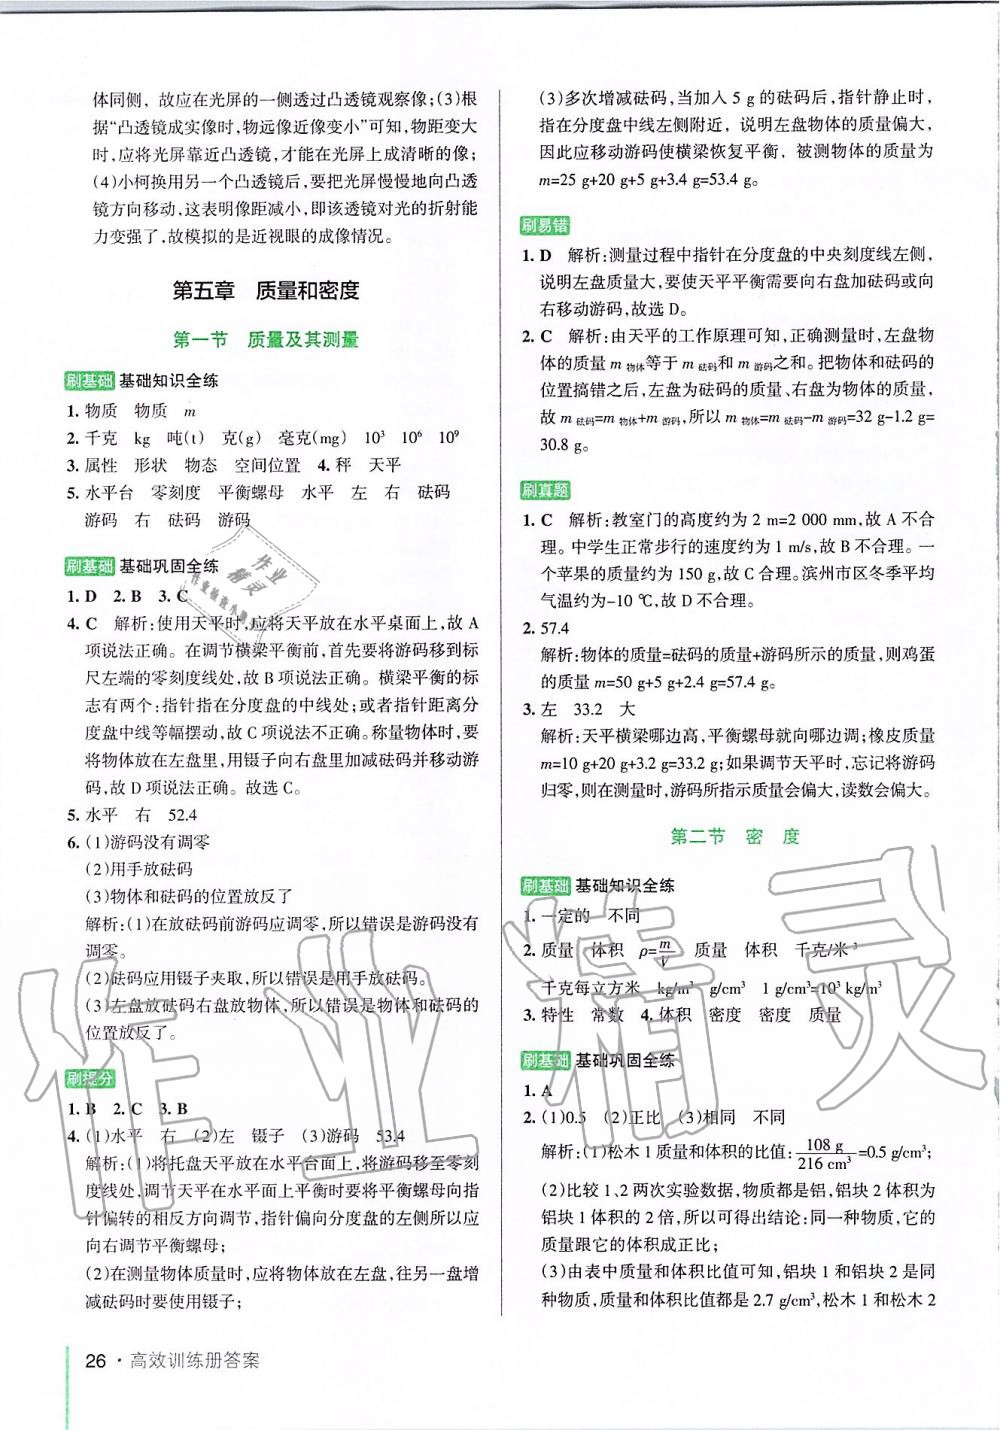 体同侧，故应在光屏的一侧透过凸透镜观察像；(3)根
据“凸透镜成实像时，物远像近像变小”可知，物距变大
时，应将光屏靠近凸透镜，才能在光屏上成清晰的像；
(4)小柯换用另一个凸透镜后，要把光屏慢慢地向凸透
镜方向移动，这表明像距减小，即该透镜对光的折射能
力变强了，故模拟的是近视眼的成像情况。
第五章 质量和密度
第一节 质量及其测量
刷基础 基础知识全练
1. 物质 物质 m
2. 千克 kg 吨(t) 克(g) 毫克(mg) 10³ 10⁶ 10⁹
3. 属性 形状 物态 空间位置 4. 秤 天平
5. 水平台 零刻度 平衡螺母 水平 左 右 砝码
游码 右 砝码 游码
刷基础 基础巩固全练
1. D 2. B 3. C
4. C 解析:使用天平时,应将天平放在水平桌面上,故 A
项说法正确。在调节横梁平衡前,首先要将游码移到标
尺左端的零刻度线处,故 B 项说法正确。横梁平衡的标
志有两个:指针指在分度盘的中线处;或者指针距离分
度盘中线等幅摆动,故 C 项说法不正确。称量物体时,要
将物体放在左盘里,用镊子向右盘里加减砝码并移动游
码,故 D 项说法正确。故选 C。
5. 水平 右 52.4
6. (1)游码没有调零
(2)用手放砝码
(3)物体和砝码的位置放反了
解析:(1)在放砝码前游码应调零,所以错误是游码没有
调零。
(2)砝码应用镊子夹取,所以错误是用手放砝码。
(3)左盘放砝码右盘放物体,所以错误是物体和砝码的
位置放反了。
刷提分
1. B 2. C 3. B
4. (1)水平 右 (2)左 镊子 (3)游码 53.4
解析:(1)将托盘天平放在水平台面上,将游码移至零刻
度线处,调节天平在水平面上平衡时要将平衡螺母向指
针偏转的相反方向调节,指针偏向分度盘的左侧所以应
向右调节平衡螺母;
(2)在测量物体质量时,应将物体放在左盘,往另一盘增
减砝码时要使用镊子;
26·高效训练册答案
(3)多次增减砝码,当加入 5 g 的砝码后,指针静止时,
指在分度盘中线左侧附近,说明左盘物体的质量偏大,
因此应移动游码使横梁恢复平衡,被测物体的质量为
m=25 g+20 g+5 g+3.4 g=53.4 g。
刷易错
1. D 解析:测量过程中指针在分度盘的中央刻度线左侧,
说明左盘质量大,要使天平平衡需要向右盘加砝码或向
右移动游码,故选 D。
2. C 解析:由天平的工作原理可知,正确测量时,左盘物
体的质量 m物体等于 m砝码和 m游码之和。把物体和砝码的
位置搞错之后,左盘为砝码的质量、右盘为物体的质量,
故 m砝码=m物体+m游码,所以 m物体=m砝码-m游码=32 g-1.2 g=
30.8 g。
刷真题
1. C 解析:教室门的高度约为 2 m=2 000 mm,故 A 不合
理。中学生正常步行的速度约为 1 m/s,故 B 不合理。一
个苹果的质量约为 150 g,故 C 合理。滨州市区冬季平均
气温约为-10 ℃,故 D 不合理。
2. 57.4
解析:物体的质量=砝码的质量+游码所示的质量,则鸡蛋
的质量 m=50 g+5 g+2.4 g=57.4 g。
3. 左 33.2 大
解析:天平横梁哪边高,平衡螺母就向哪边调;橡皮质量
m=10 g+20 g+3.2 g=33.2 g;如果调节天平时,忘记将游码
归零,则在测量时,游码所指示质量会偏大,读数会偏大。
第二节 密 度
刷基础 基础知识全练
1. 一定的 不同
2. 质量 体积 ρ=m/V 质量 体积 千克/米³
千克每立方米 kg/m³ g/cm³ 1 g/cm³=10³ kg/m³
3. 特性 常数 4. 体积 密度 密度 质量
刷基础 基础巩固全练
1. A
2. (1)0.5 (2)正比 (3)相同 不同
解析:(1)松木 1 质量和体积的比值:108 g/216 cm³=0.5 g/cm³;
(2)比较 1、2 两次实验数据,物质都是铝,铝块 2 体积为
铝块 1 体积的 2 倍,所以可得出结论:同一种物质,它的
质量跟它的体积成正比;
(3)由表中质量和体积比值可知,铝块 1 和铝块 2 是同
种物质,质量和体积比都是 2.7 g/cm³,松木 1 和松木 2
作业精灵
作业精灵
作业检查小助手